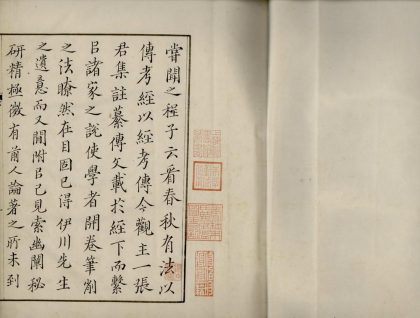 嘗聞之程子云看春秋有法以
傳考經以經考傳今觀主一張
君集註纂傳文載於經下而繫
㠯諸家之說使學者開卷筆削
之法瞭然在目固已得伊川先生
之遺意而又間附㠯己見索幽闡秘
研精極微有前人論著之所未到